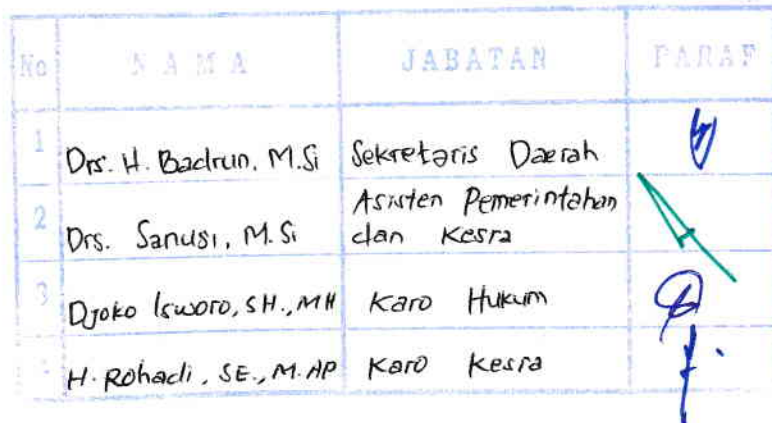 No NAMA JABATAN PARAF
1 Drs. H. Badrun, M.Si Sekretaris Daerah
2 Drs. Sanusi, M.Si Asisten Pemerintahan
dan Kesra
3 Djoko Isworo, SH., MH Karo Hukum
H. Rohadi, SE., M.AP Karo Kesra